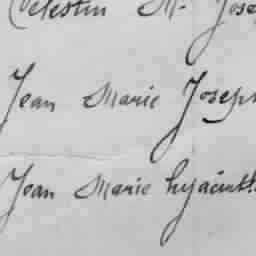 Celestin M. Jose
Jean Marie Joseph
Jean Marie hyacinth